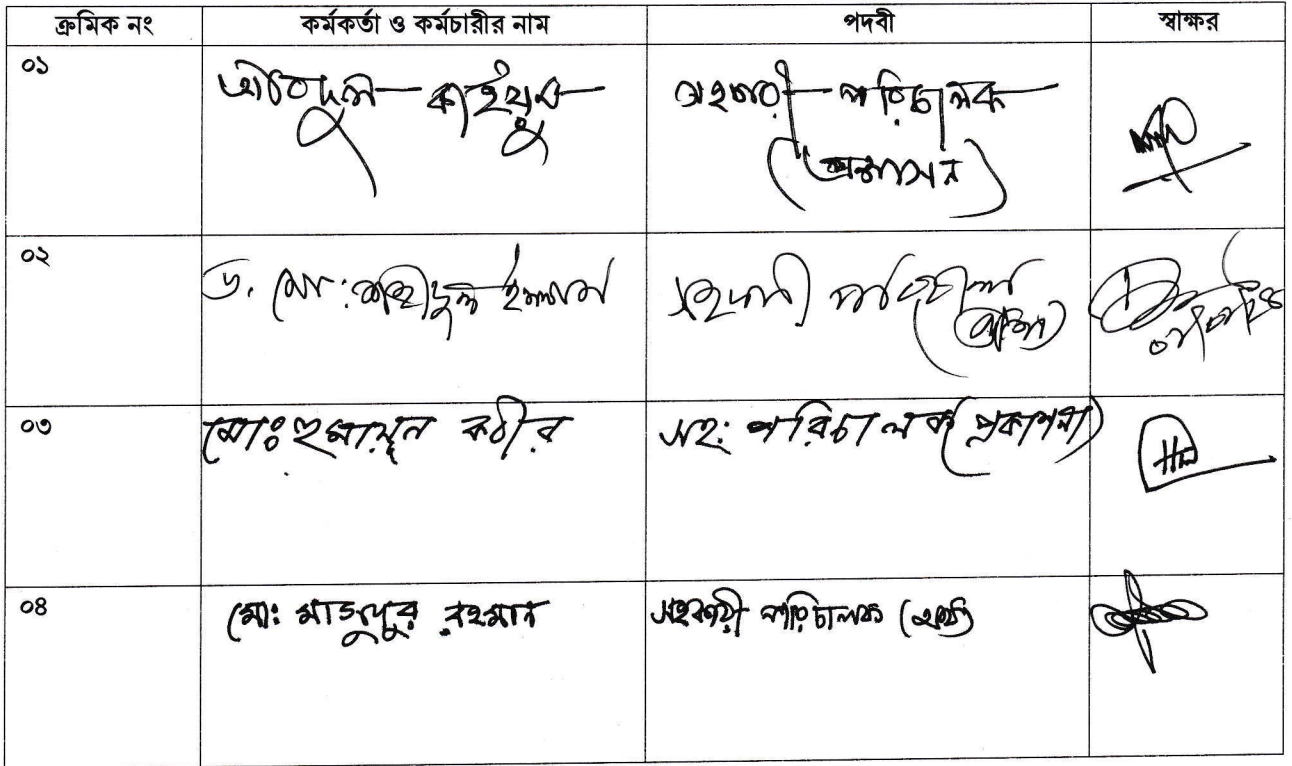 ক্রমিক নং কর্মকর্তা ও কর্মচারীর নাম পদবী স্বাক্ষর
০১ আবদুল কাইয়ুম সহকারী পরিচালক
(প্রশাসন)
০২ ড. মো: শহীদুল ইসলাম সহকারী পরিচালক
০৩ মোঃ হুমায়ূন কবীর সহ: পরিচালক (প্রকাশনা)
০৪ মো: মাজদুর রহমান সহকারী পরিচালক (অর্থ)